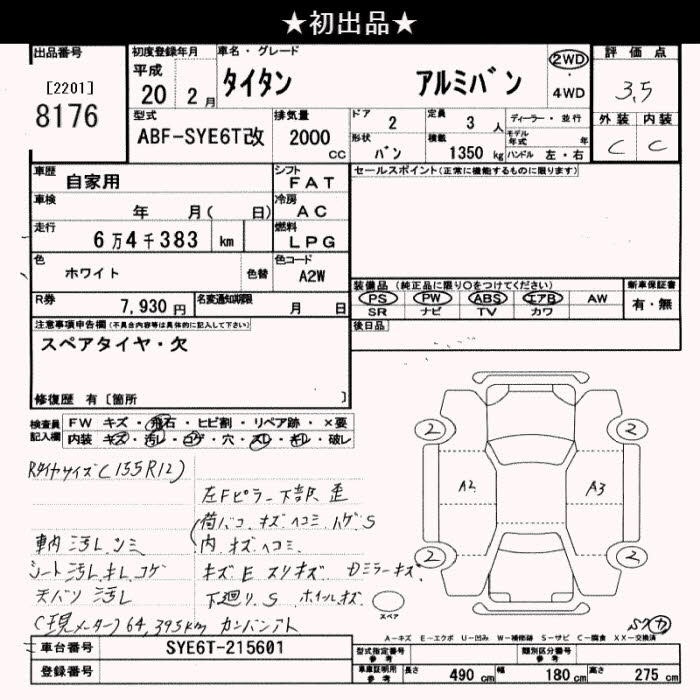 ★初出品★
出品番号
[2201]
8176
初度登録年月
平成
20 2月
車名・グレード
タイタン アルミバン
2WD
・
4WD
評価点
3.5
外装 内装
C C
型式
ABF-SYE6T改
排気量
2000 cc
ドア
2
定員
3 人
形状
バン
積載
1350 kg
ディーラー・並行
モデル年式 年
ハンドル 左・右
車歴
自家用
シフト
FAT
車検
年 月( 日)
冷房
AC
走行
6万4千383 km
燃料
LPG
色
ホワイト
色替
色コード
A2W
R券
7,930円
名変通知期限
月 日
セールスポイント(正常に機能するものに限ります)
装備品 (純正品に限り○をつけてください)
PS PW ABS エアB AW
SR ナビ TV カワ
新車保証書
有・無
後日品
注意事項申告欄(不具合内容等は具体的に記入して下さい)
スペアタイヤ・欠
修復歴 有[箇所 ]
検査員記入欄
FW キズ・飛石・ヒビ割・リペア跡・×要
内装 キズ・汚レ・コゲ・穴・スレ・キレ・破レ
Rタイヤサイズ(155R12)
左Fピラー下部歪
荷バコ キズ ヘコミ ハゲ S
内 キズ ヘコミ
車内汚レ シミ
シート汚レ キレ コゲ
キズ E スリキズ
ミラーキズ
天バリ汚レ
下廻り S ホイールキズ
(現メーター)64,395km カンバンアト
スペア
2
2
2
2
A2
A3
A-キズ E-エクボ U-凹み W-補修跡 S-サビ C-腐食 XX-交換済
車台番号
SYE6T-215601
登録番号
型式指定番号
参考
類別区分番号
参考
車庫証明用
参考
長さ 490 cm 幅 180 cm 高さ 275 cm